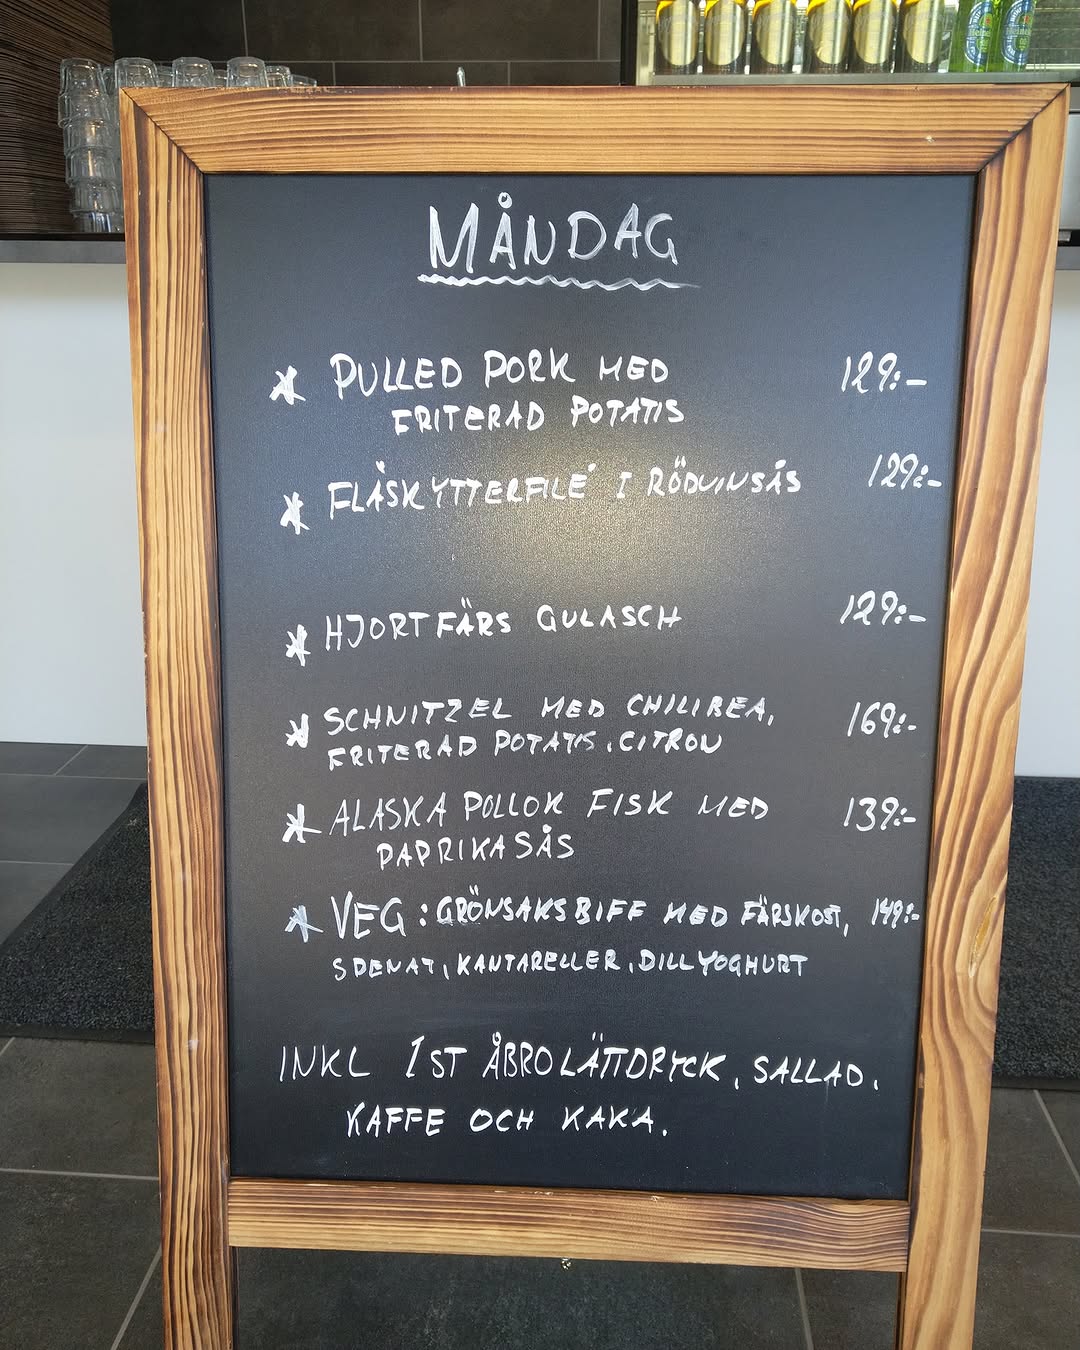 MÅNDAG
* PULLED PORK MED 129:-
FRITERAD POTATIS
* FLÄSKYTTERFILÉ I RÖDVINSÅS 129:-
* HJORTFÄRS GULASCH 129:-
* SCHNITZEL MED CHILIBEA, 169:-
FRITERAD POTATIS, CITRON
* ALASKA POLLOK FISK MED 139:-
PAPRIKASÅS
* VEG: GRÖNSAKSBIFF MED FÄRSKOST, 149:-
SPENAT, KANTARELLER, DILLYOGHURT
INKL 1ST ÅBRO LÄTTDRYCK, SALLAD,
KAFFE OCH KAKA.